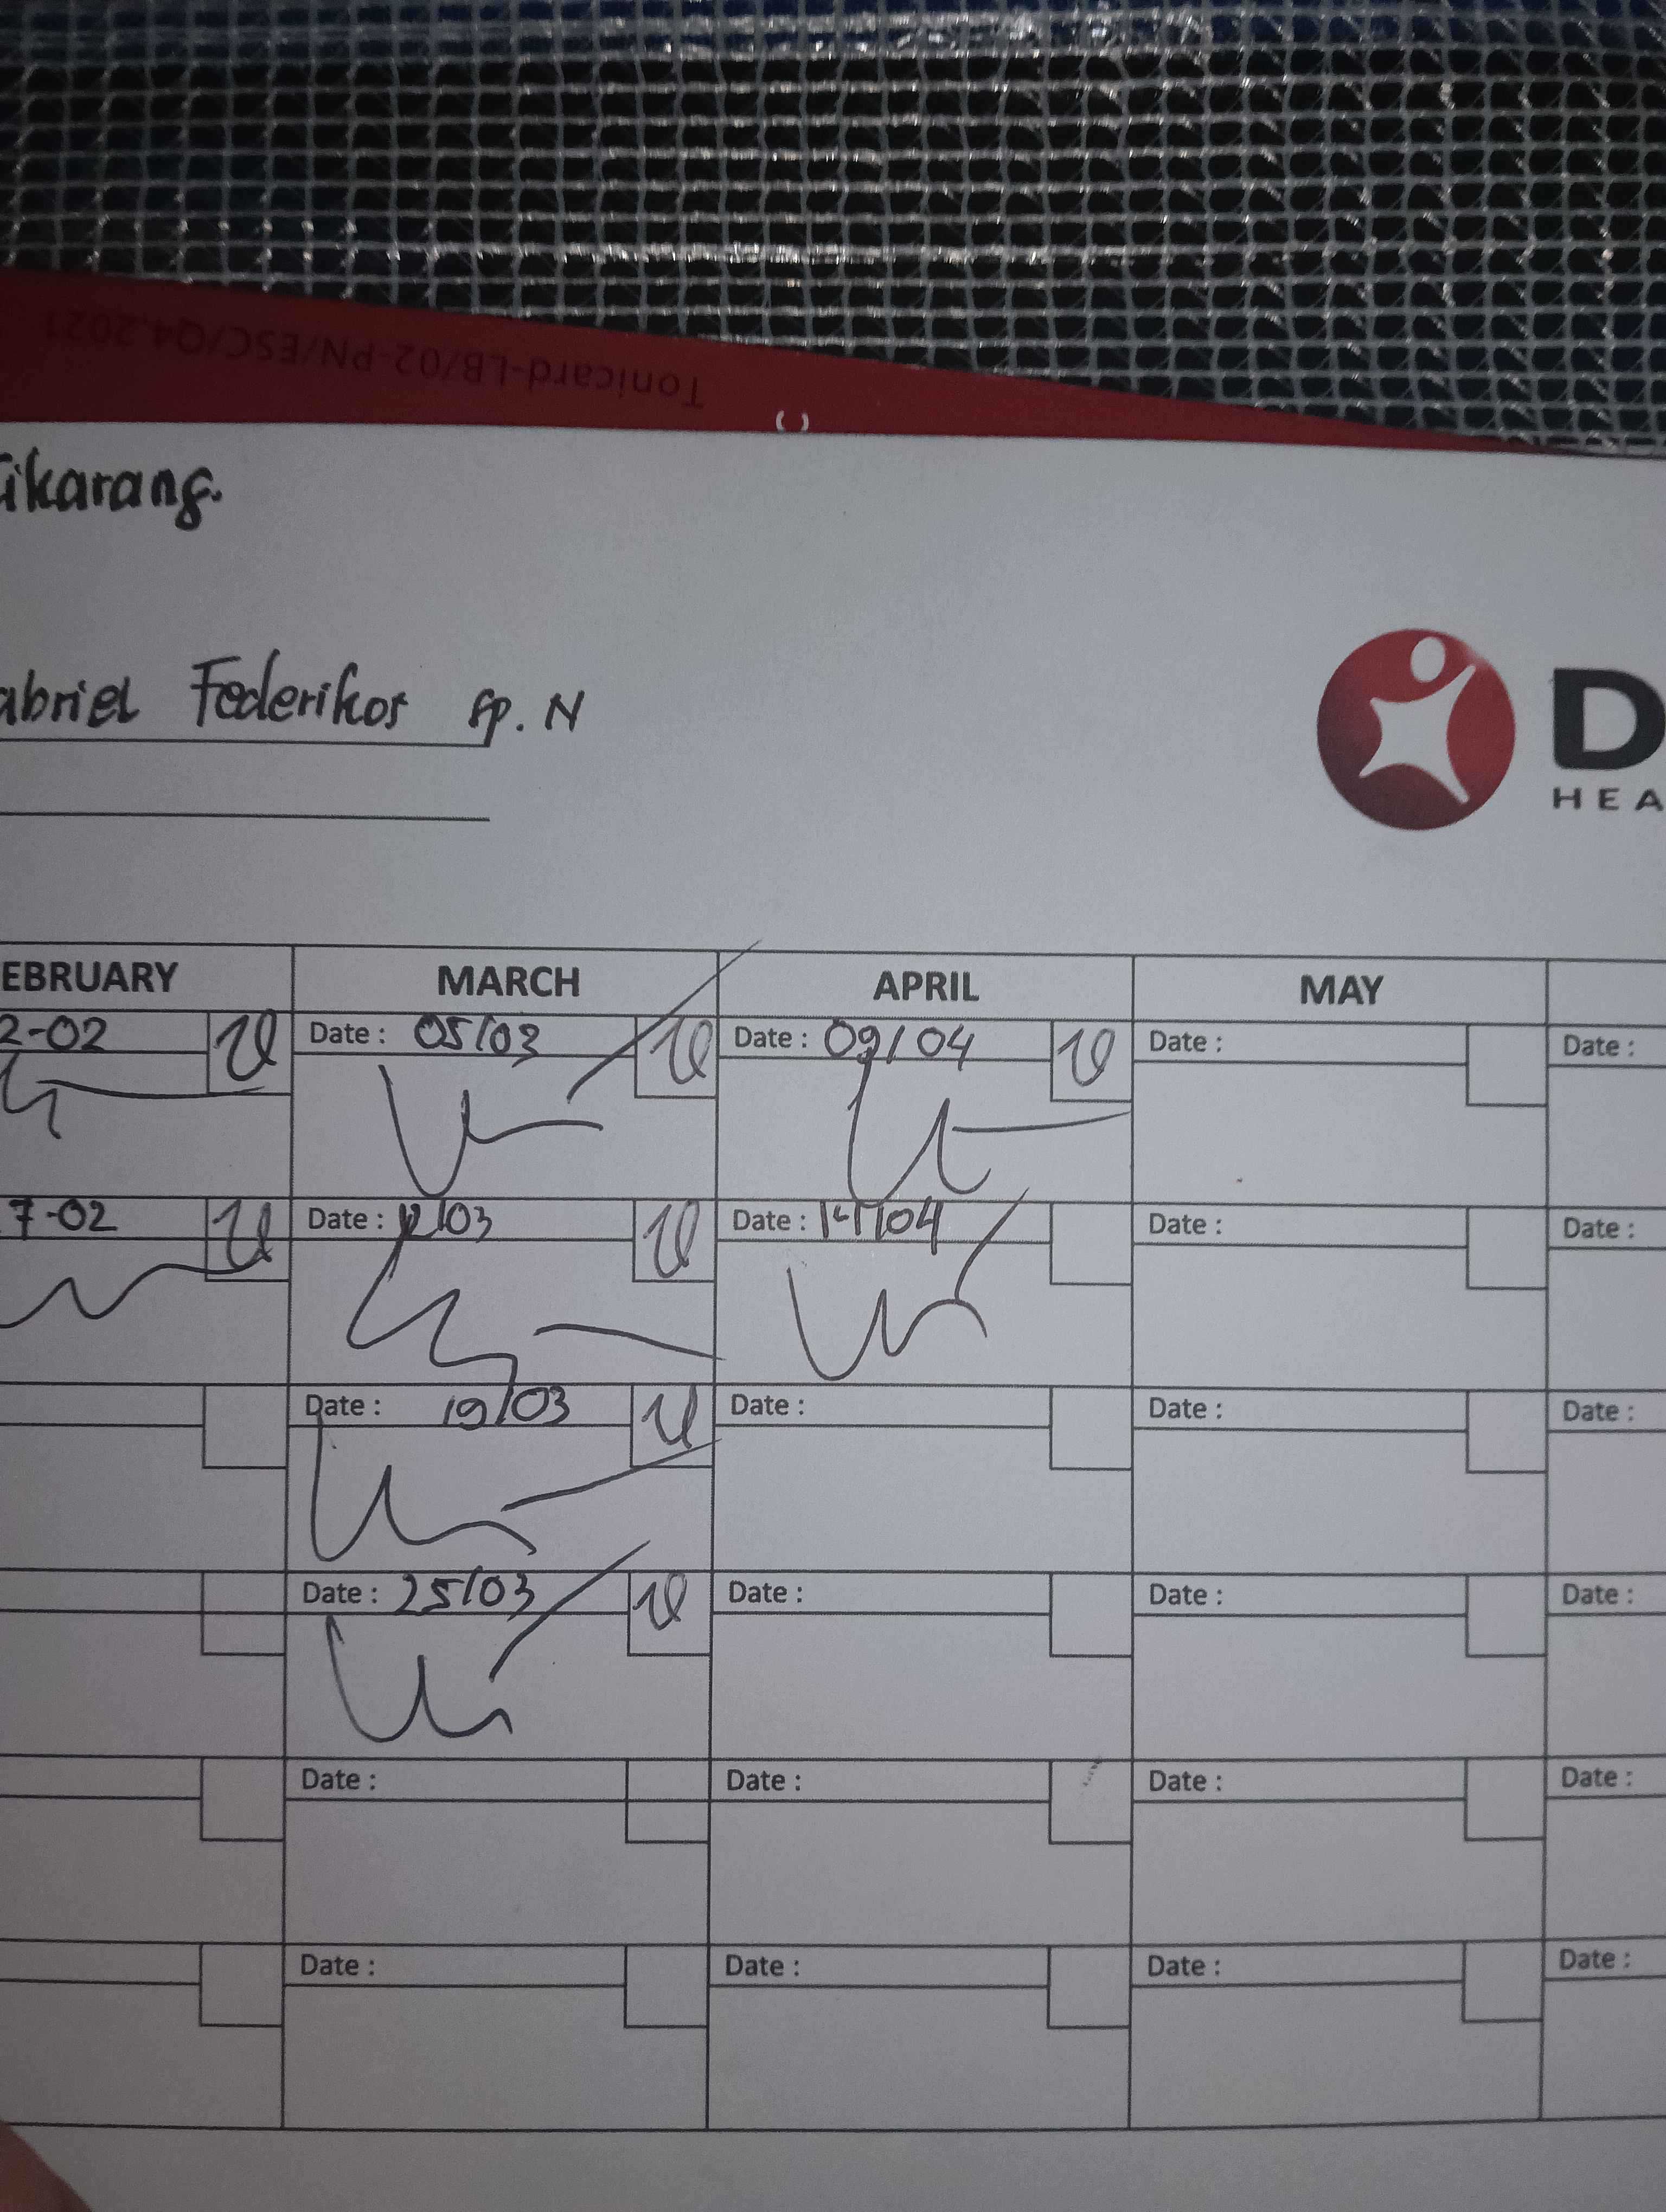 Tonicard-LB/02-PN/ESC/Q4.2021
ikarang.
abriel Federikos Sp. N
D
HEA
EBRUARY MARCH APRIL MAY
2-02 Date : 05/03 Date : 09/04 Date : Date :
7-02 Date : 12/03 Date : 14/04 Date : Date :
Date : 19/03 Date : Date : Date :
Date : 25/03 Date : Date : Date :
Date : Date : Date : Date :
Date : Date : Date : Date :